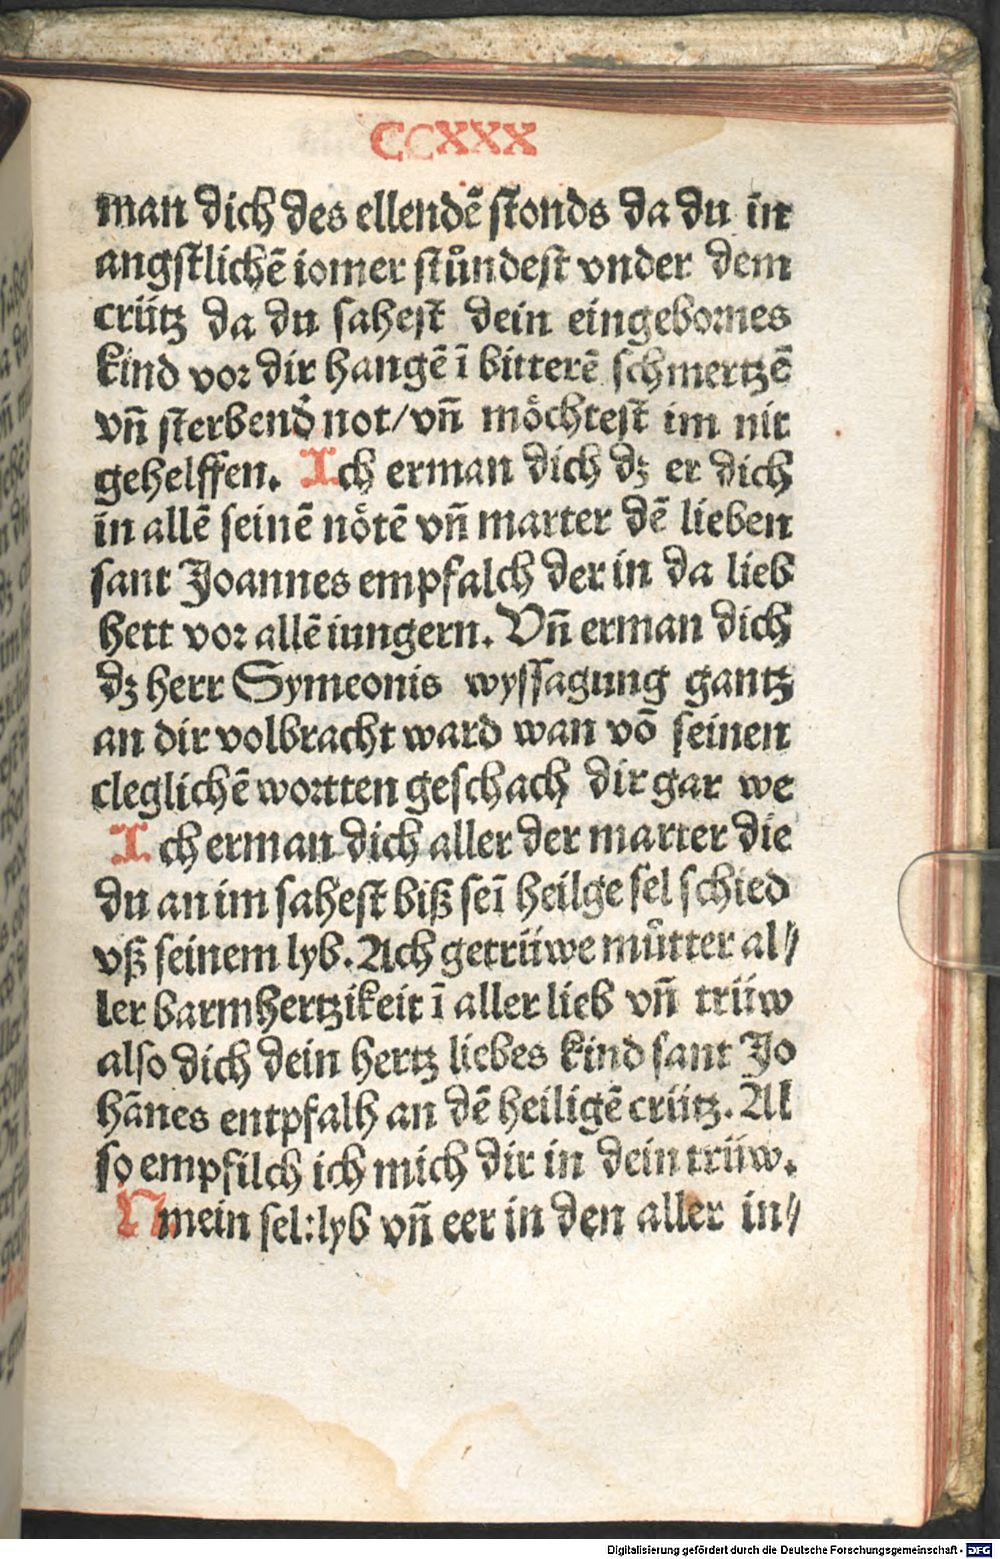 CCXXX
man dich des ellendē stonds da du in
angstlichē iomer stůndest vnder dem
crütz da du sahest dein eingebornes
kind vor dir hangē ī bitterē schmertzē
vñ sterbend not/vñ möchtest im nit
gehelffen. Ich erman dich dz er dich
in allē seinē nötē vñ marter dē lieben
sant Joannes empfalch der in da lieb
hett vor allē iungern. Vñ erman dich
dz herr Symeonis wyssagung gantz
an dir volbracht ward wan vō seinen
cleglichē wortten geschach dir gar we
Ich erman dich aller der marter die
du an im sahest biß seī heilge sel schied
vß seinem lyb. Ach getrüwe můtter al//
ler barmhertzikeit ī aller lieb vñ trüw
also dich dein hertz liebes kind sant Jo
hānes entpfalh an dē heiligē crütz. Al
so empfilch ich mich dir in dein trüw.
N mein sel:lyb vñ eer in den aller in//
Digitalisierung gefördert durch die Deutsche Forschungsgemeinschaft - DFG